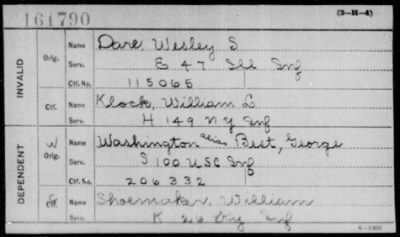 161790
(3-H-4)
INVALID
Orig. Name Dare, Wesley S
Serv. E 47 Ill Inf
Ctf. No. 115065
Ctf. Name Klock, William L
Serv. H 149 NY Inf
DEPENDENT
W Orig. Name Washington alias Best, George
Serv. I 100 USC Inf
Ctf. No. 206332
Ctf. Name Shoemaker, William
Serv. K 26 Inf